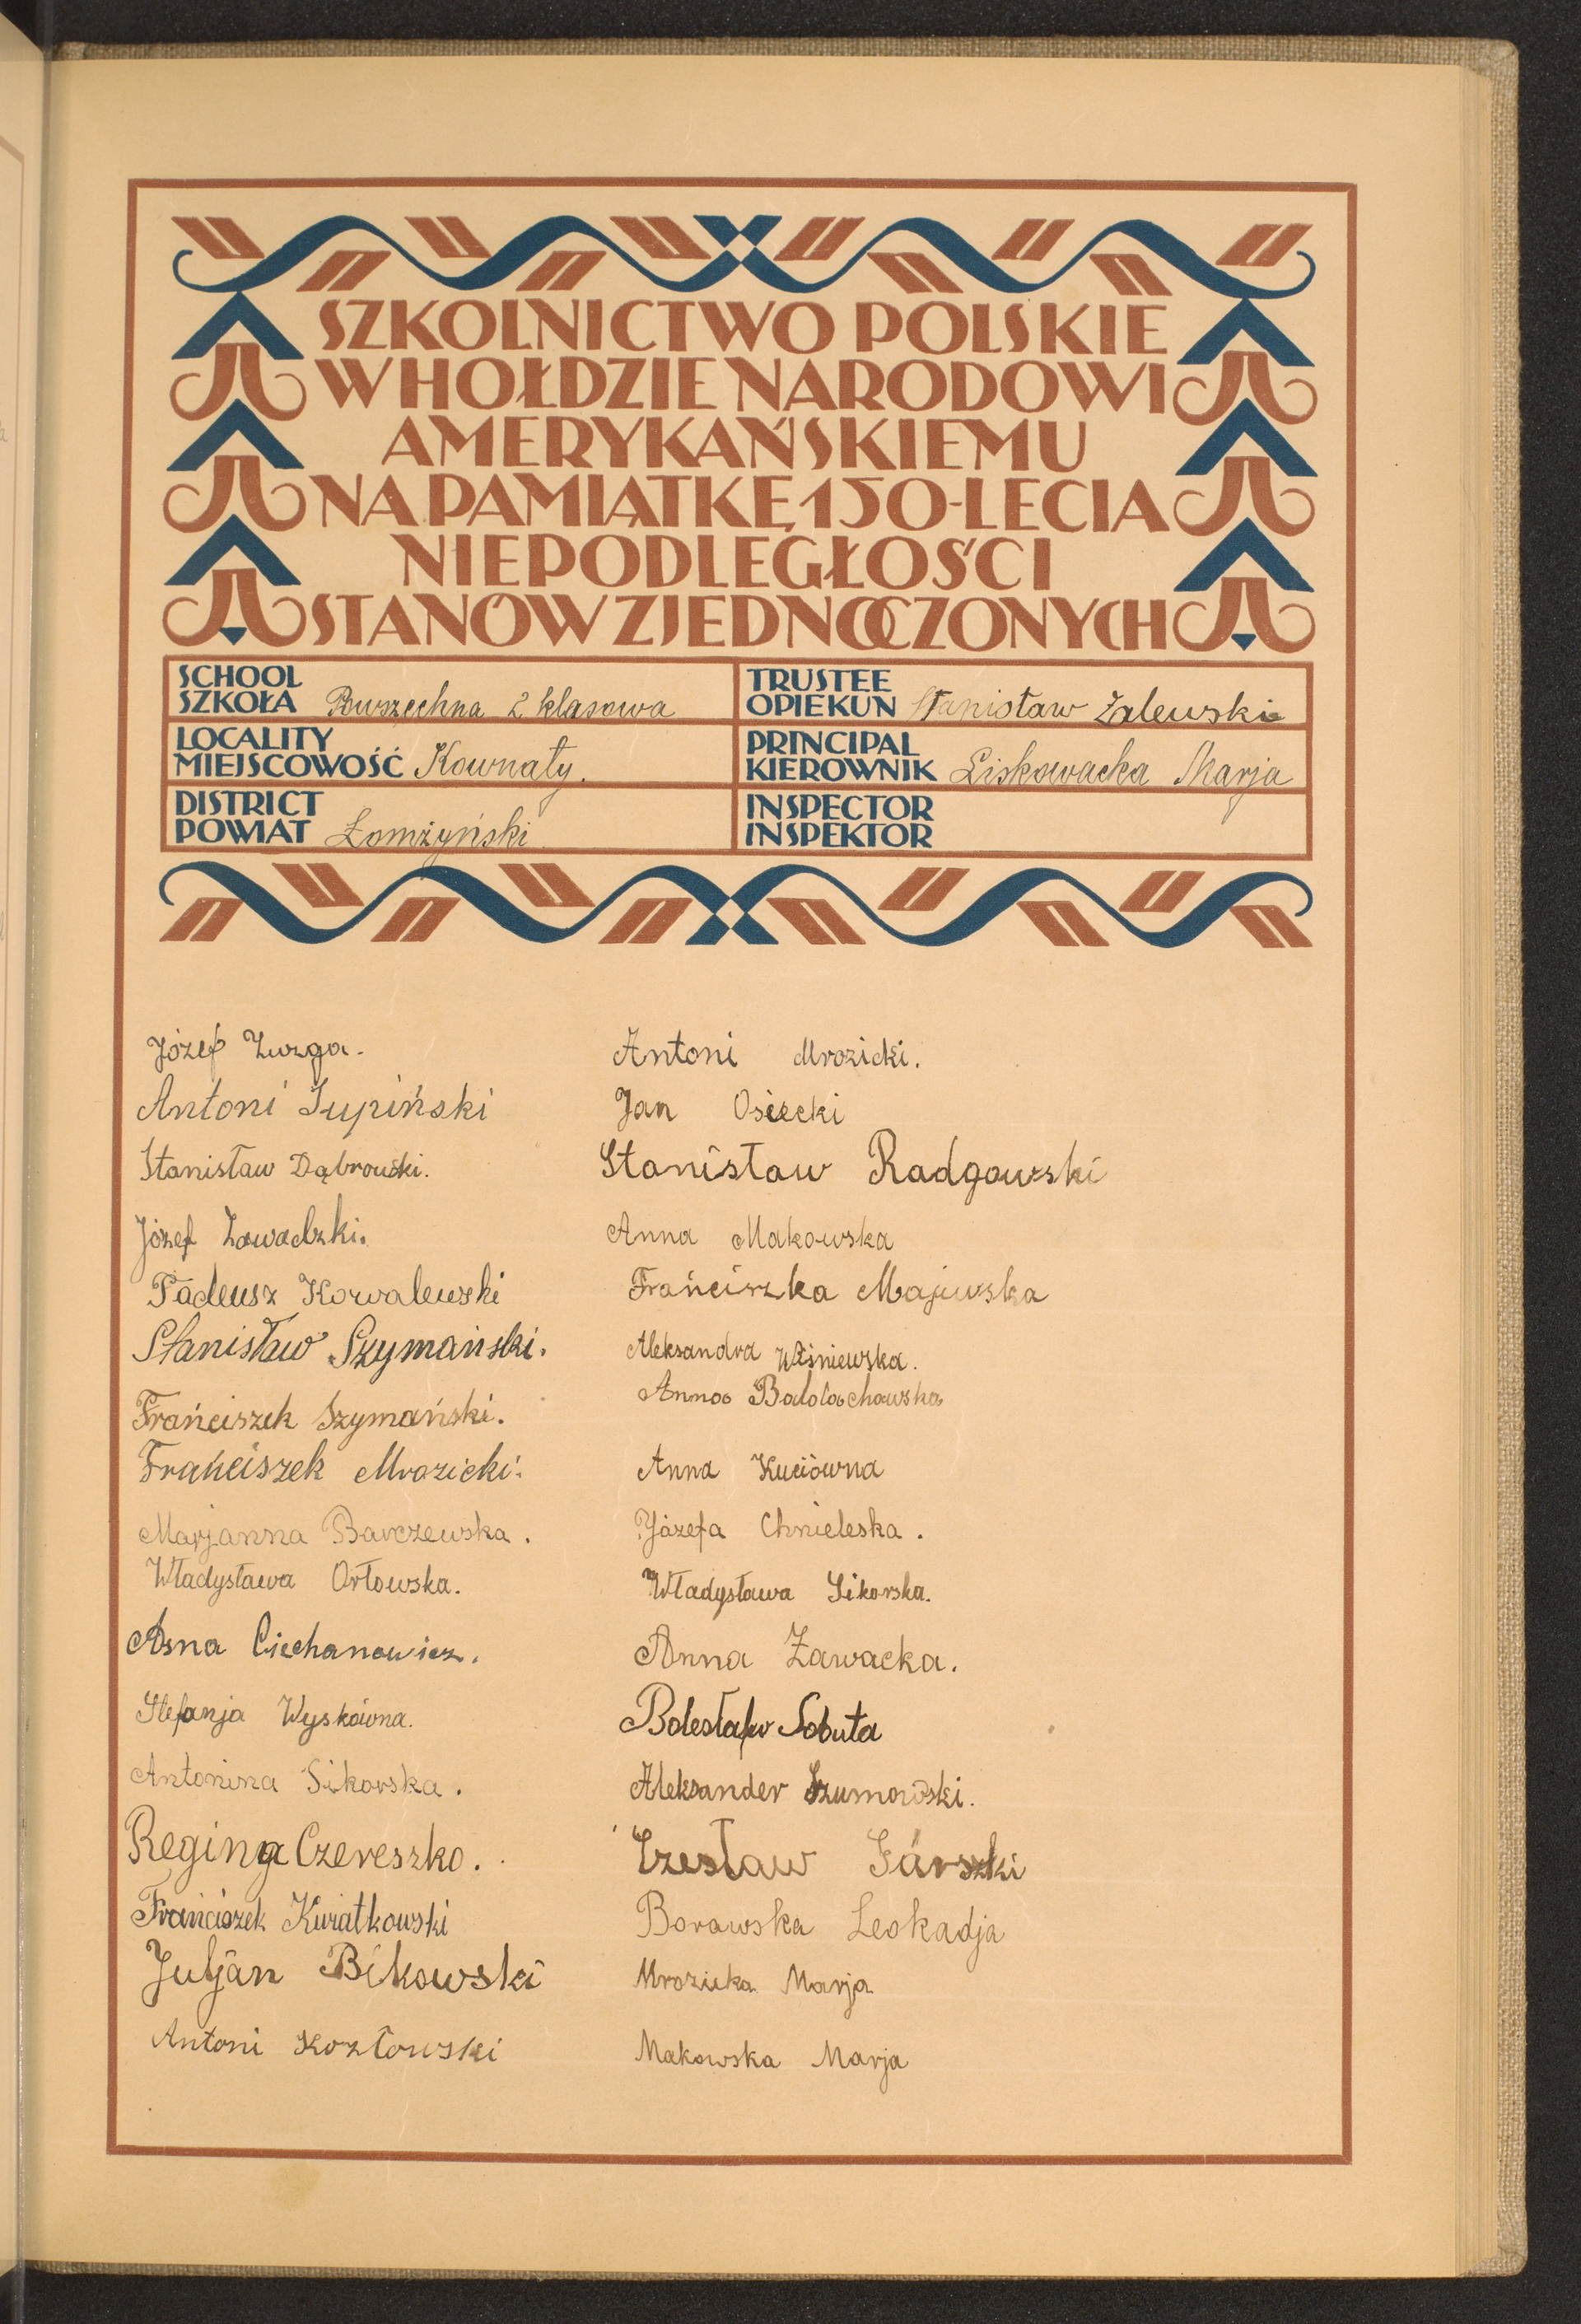 SZKOLNICTWO POLSKIE
W HOŁDZIE NARODOWI
AMERYKAŃSKIEMU
NA PAMIĄTKĘ 150-LECIA
NIEPODLEGŁOŚCI
STANÓW ZJEDNOCZONYCH
SCHOOL
SZKOŁA Powszechna 2 klasowa
LOCALITY
MIEJSCOWOŚĆ Kownaty.
DISTRICT
POWIAT Łomżyński
TRUSTEE
OPIEKUN Stanisław Zalewski
PRINCIPAL
KIEROWNIK Liskowacka Marja
INSPECTOR
INSPEKTOR
Józef Zuzga.
Antoni Supiński
Stanisław Dąbrowski.
Józef Zawadzki.
Tadeusz Kowalewski
Stanisław Szymański.
Frańciszek Szymański.
Frańciszek Mrozicki.
Marjanna Barczewska.
Władysława Orłowska.
Asna Ciechanowicz.
Stefanja Wyskówna.
Antonina Sikorska.
Regina Czereszko.
Frańciszek Kwiatkowski
Juljan Bikowski
Antoni Kozłowski
Antoni Mrozicki.
Jan Osiecki
Stanisław Radgowski
Anna Makowska
Frańciszka Majewska
Aleksandra Wiśniewska.
Anna
Anna Kuciówna
Józefa Chnieleska.
Władysława Sikorska.
Anna Zawacka.
Bolesław Sobuta
Aleksander Szumowski.
Czesław Járski
Borawska Leokadja
Mrozicka Marja
Makowska Marja